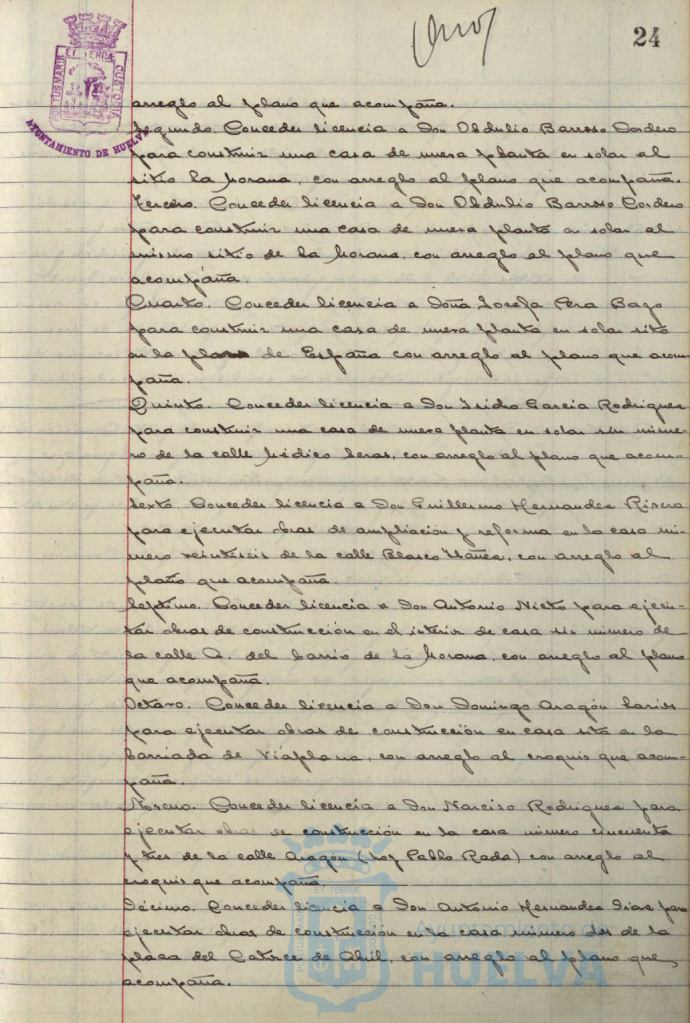 24
PORTUS MARIS ET TERRÆ CUSTODIA
AYUNTAMIENTO DE HUELVA
arreglo al plano que acompaña.
Segundo. Conceder licencia a Don Obdulio Barroso Cordero
para construir una casa de nueva planta en solar al
sitio la Morana, con arreglo al plano que acompaña.
Tercero. Conceder licencia a Don Obdulio Barroso Cordero
para construir una casa de nueva planta en solar al
mismo sitio de la Morana, con arreglo al plano que
acompaña.
Cuarto. Conceder licencia a Doña Josefa Pera Bago
para construir una casa de nueva planta en solar sito
en la plaza de España con arreglo al plano que acom-
paña.
Quinto. Conceder licencia a Don Isidro García Rodriguez
para construir una casa de nueva planta en solar sin núme-
ro de la calle Médico Seras, con arreglo al plano que acom-
paña.
Sexto. Conceder licencia a Don Guillermo Hernandez Rivera
para ejecutar obras de ampliación y reforma en la casa nú-
mero veintiseis de la calle Blasco Ibáñez, con arreglo al
plano que acompaña.
Septimo. Conceder licencia a Don Antonio Nieto para ejecu-
tar obras de construcción en el interior de casa sin número de
la calle A. del barrio de la Morana, con arreglo al plano
que acompaña.
Octavo. Conceder licencia a Don Domingo Aragón Larios
para ejecutar obras de construcción en casa sita en la
barriada de Viaplana, con arreglo al croquis que acom-
paña.
Noveno. Conceder licencia a Don Narciso Rodriguez para
ejecutar obras de construcción en la casa número cincuenta
y tres de la calle Aragón (hoy Pablo Rada) con arreglo al
croquis que acompaña.
Décimo. Conceder licencia a Don Antonio Hernandez Diaz para
ejecutar obras de construcción en la casa número dos de la
plaza del Catorce de Abril, con arreglo al plano que
acompaña.
Ayuntamiento de
HUELVA